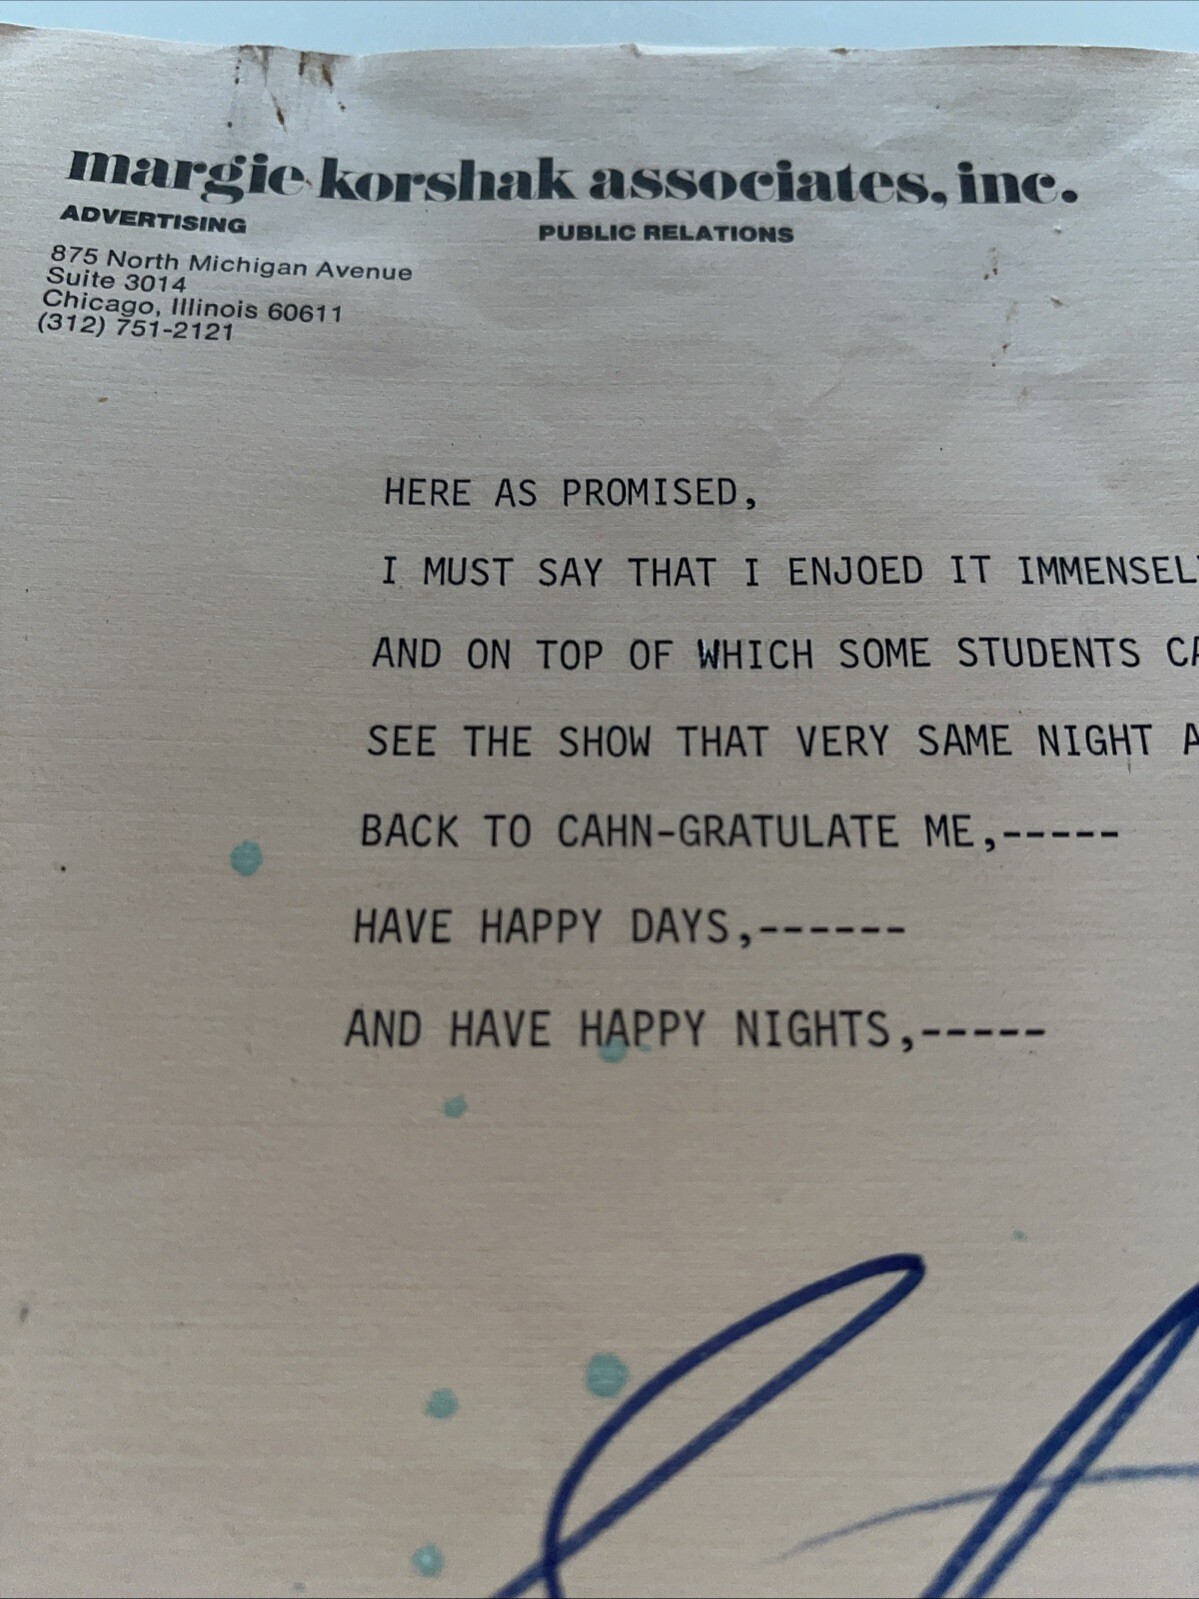 margie korshak associates, inc.
ADVERTISING PUBLIC RELATIONS
875 North Michigan Avenue
Suite 3014
Chicago, Illinois 60611
(312) 751-2121
HERE AS PROMISED,
I MUST SAY THAT I ENJOED IT IMMENSEL
AND ON TOP OF WHICH SOME STUDENTS CA
SEE THE SHOW THAT VERY SAME NIGHT A
BACK TO CAHN-GRATULATE ME,-----
HAVE HAPPY DAYS,------
AND HAVE HAPPY NIGHTS,-----